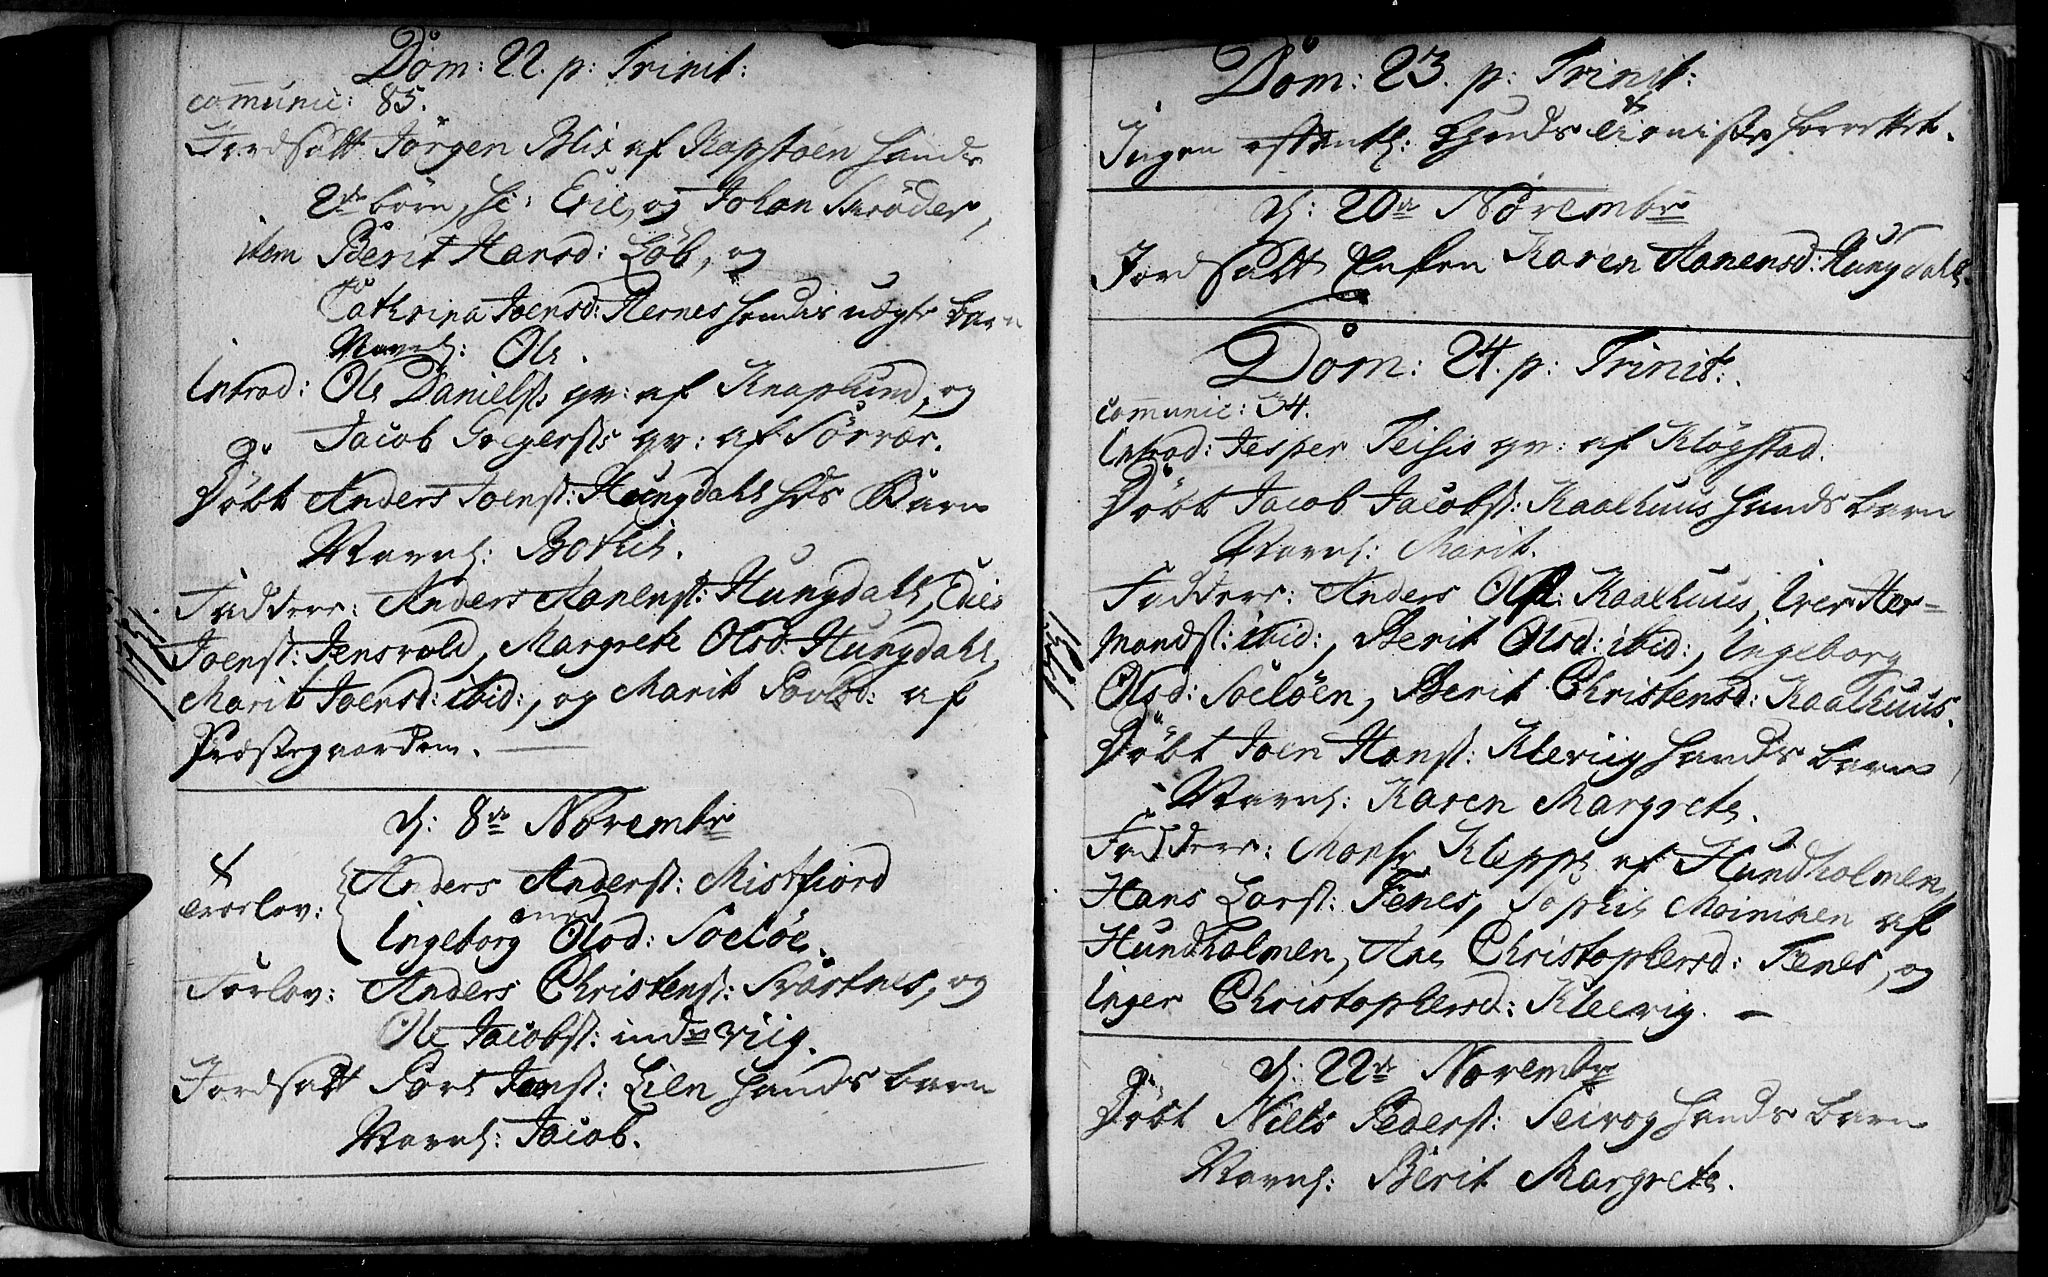 Dom: 22. p: Trinit:
communic: 85.
Jordsatt Jörgen Blix af Kopstöen hands
2de börn, sc: Eric, og Johan Schröder,
item Berit Hansd: Löb, og
Cathrina Joensd: Hernes hendis uægte barn
Navnl: Ole.
Introd: Ole Danielss: qv: af Knaplund, og
Jacob Gregerss: qv: af Sörvær.
Döbt Anders Joenss: Hungdahl hds Barn
Navnl: Bothel.
Faddere: Anders Aanenss: Hungdahl, Edis
Joenss: Jensvold, Margrete Olsd: Hungdahl,
Marit Joensd: ibid:, og Marit Povlsd: af
Præstegaarden.
1751.
d: 8de Novembr
Trolov: Anders Anderss: Mistfiord
med
Ingeborg Olsd: Soelöe.
Forlov: Anders Christenss: Svartnes, og
Ole Jacobss: indre viig.
Jordsatt Povl Jenss: Lien hands barn
Navnl: Jacob.
Dom: 23. p: Trinit:
Ingen offentl: Gudstieniste forrettet.
d: 20de Novembr
Jordsatt Enken Karen Aanensd: Hungdahl.
Dom: 24. p: Trinit:
communic: 34.
Introd: Jesper Teisis qv: af Klögstad.
Döbt Jacob Jacobss: Kaalhuus hands barn
Navnl: Marit.
Faddere: Anders Olss: Kaalhuus, Iver Her-
mandss: ibid:, Berit Olsd: ibid:, Ingeborg
Olsd: Soelöen, Berit Christensd: Kaalhuus.
1751.
Döbt Joen Hanss: Kleviig hands barn
Navnl: Karen Margrete.
Faddere: Monsr Klepp af Hundholmen,
Hans Larss: Fenes, Sophie Meiniken af
Hundholmen, Ane Christophersd: Fenes, og
Inger Christophersd: Kleevig.
d: 22de Novembr
Döbt Niels Pederss: Seivog hands barn
Navnl: Berit Margrete.